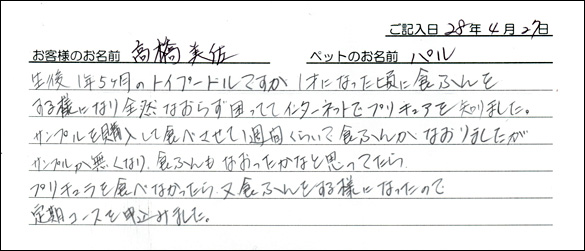 ご記入日 28年 4月 27日
お客様のお名前 高橋 美佐 ペットのお名前 パル
生後 1年5ヶ月のトイプードルですが 1才になった頃に食ふんを
する様になり全然なおらず困っててインターネットでプリキュアを知りました。
サンプルを購入して食べさせて1週間くらいで食ふんがなおりましたが
サンプルが無くなり、食ふんもなおったかなと思ってたら
プリキュラを食べなかったら又食ふんをする様になったので
定期コースを申込みました。